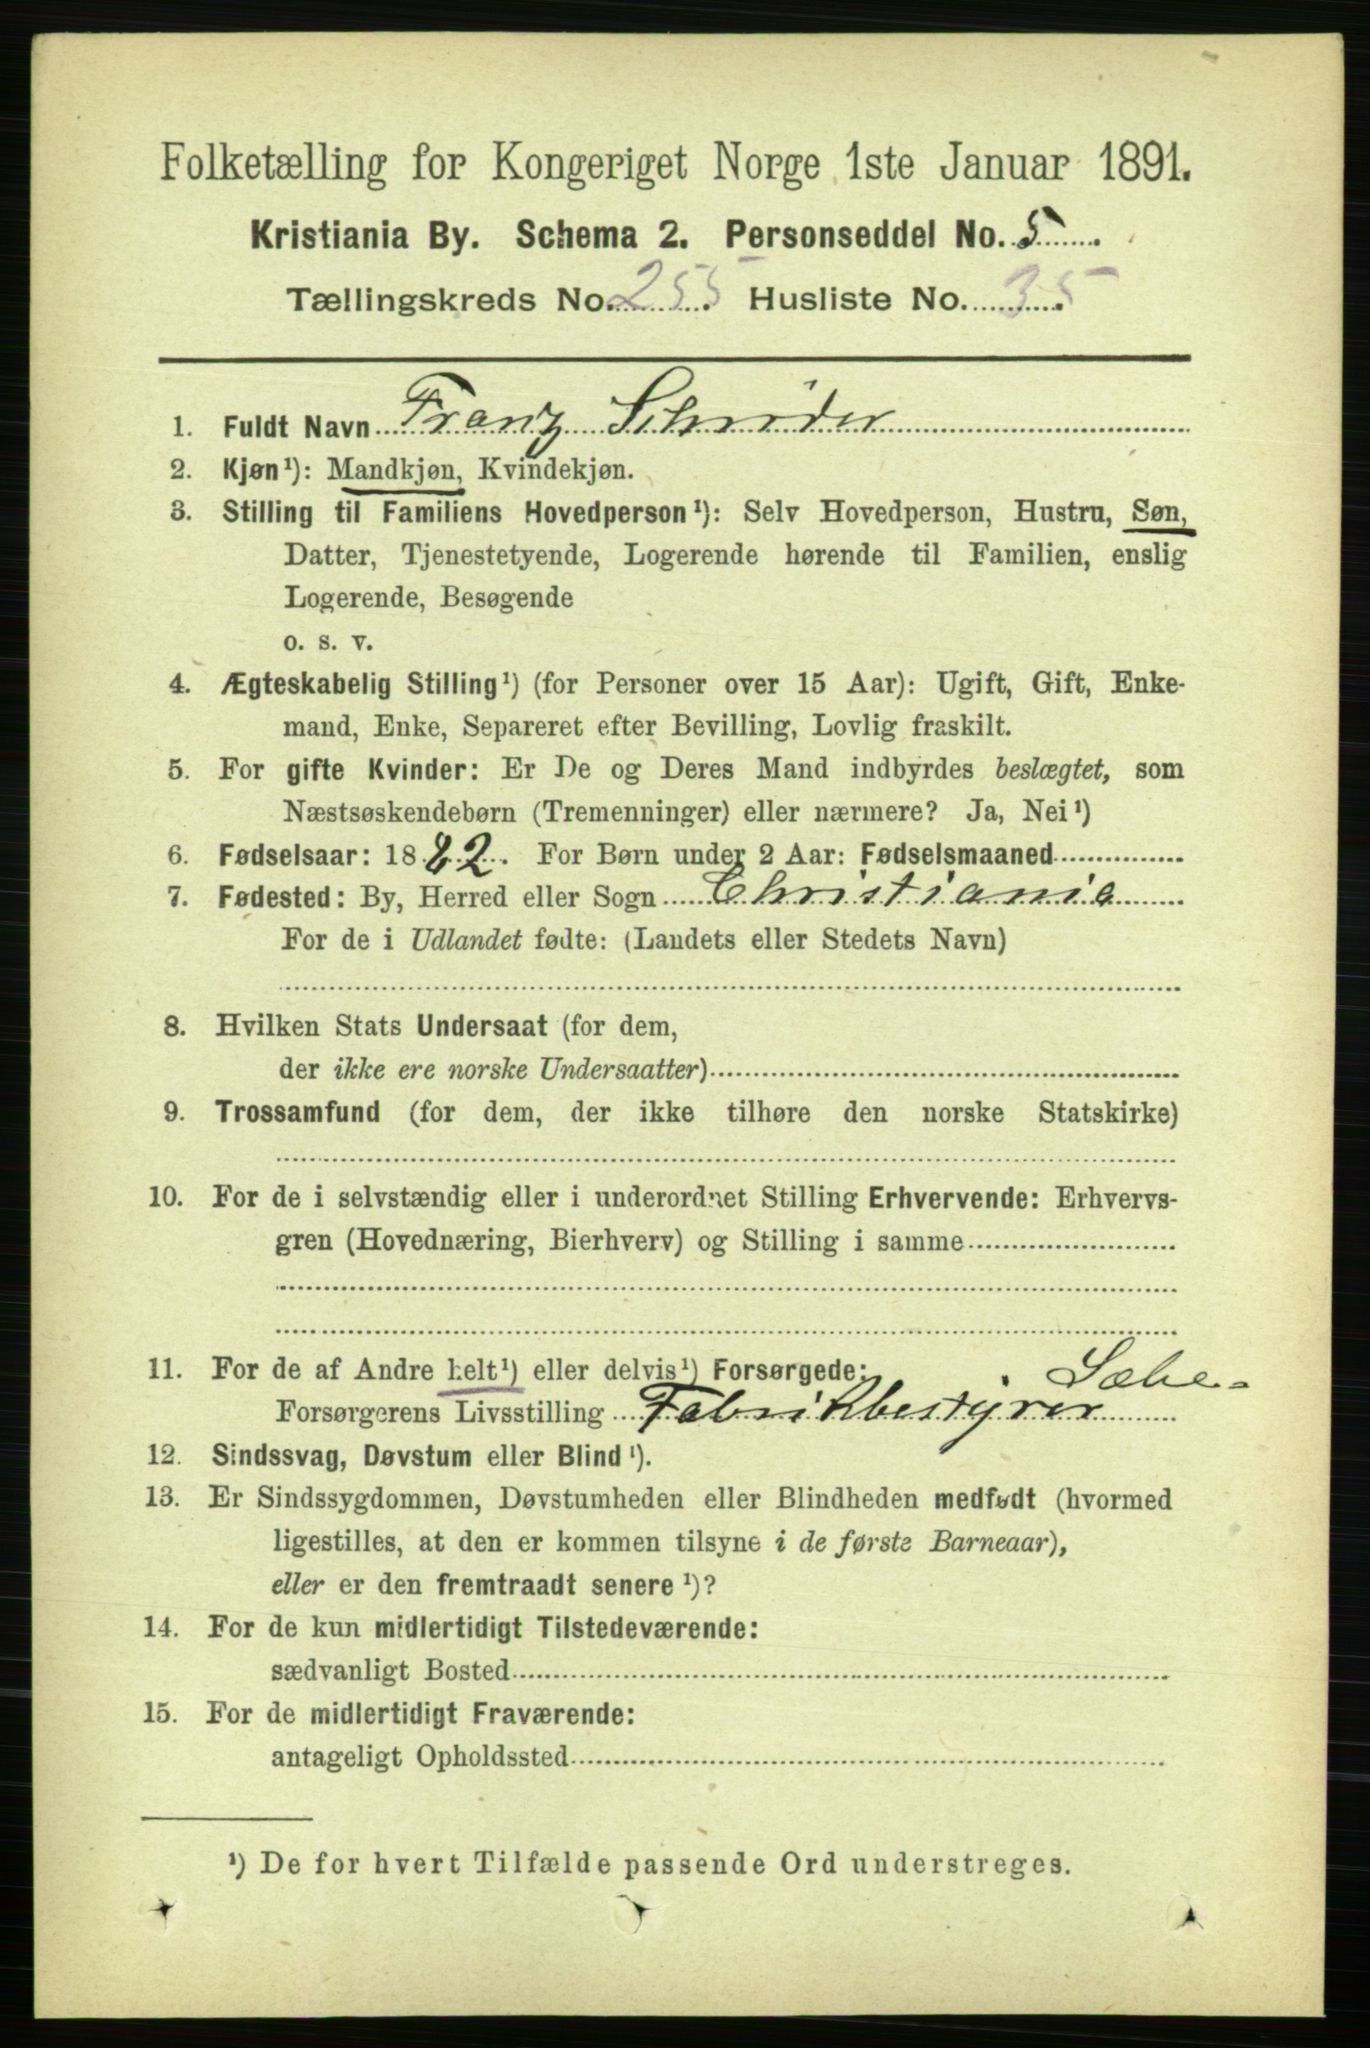 Folketælling for Kongeriget Norge 1ste Januar 1891.
Kristiania By. Schema 2. Personseddel No. 5
Tællingskreds No. 255. Husliste No. 35.
1. Fuldt Navn Franz Schrøder
2. Kjøn¹): Mandkjøn, Kvindekjøn.
3. Stilling til Familiens Hovedperson¹): Selv Hovedperson, Hustru, Søn,
Datter, Tjenestetyende, Logerende hørende til Familien, enslig
Logerende, Besøgende
o. s. v.
4. Ægteskabelig Stilling¹) (for Personer over 15 Aar): Ugift, Gift, Enke-
mand, Enke, Separeret efter Bevilling, Lovlig fraskilt.
5. For gifte Kvinder: Er De og Deres Mand indbyrdes beslægtet, som
Næstsøskendebørn (Tremenninger) eller nærmere? Ja, Nei¹)
6. Fødselsaar: 1882. For Børn under 2 Aar: Fødselsmaaned
7. Fødested: By, Herred eller Sogn Christiania
For de i Udlandet fødte: (Landets eller Stedets Navn)
8. Hvilken Stats Undersaat (for dem,
der ikke ere norske Undersaatter)
9. Trossamfund (for dem, der ikke tilhøre den norske Statskirke)
10. For de i selvstændig eller i underordnet Stilling Erhvervende: Erhvervs-
gren (Hovednæring, Bierhverv) og Stilling i samme
11. For de af Andre helt¹) eller delvis¹) Forsørgede: Sæbe-
Forsørgerens Livsstilling Fabrikbestyrer
12. Sindssvag, Døvstum eller Blind¹).
13. Er Sindssygdommen, Døvstumheden eller Blindheden medfødt (hvormed
ligestilles, at den er kommen tilsyne i de første Barneaar),
eller er den fremtraadt senere¹)?
14. For de kun midlertidigt Tilstedeværende:
sædvanligt Bosted
15. For de midlertidigt Fraværende:
antageligt Opholdssted
¹) De for hvert Tilfælde passende Ord understreges.